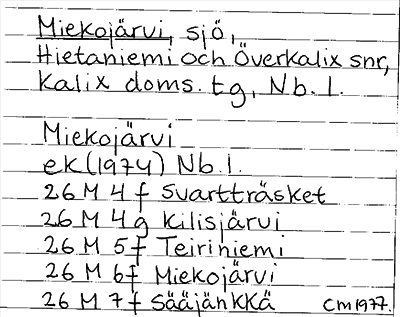 Miekojärvi, sjö,
Hietaniemi och Överkalix snr,
Kalix doms. tg, Nb. l.
Miekojärvi
ek (1974) Nb. l.
26 M 4 f Svartträsket
26 M 4g Kilisjärvi
26 M 5f Teiriniemi
26 M 6f Miekojärvi
26 M 7 f Sääjänkkä CM 1977.